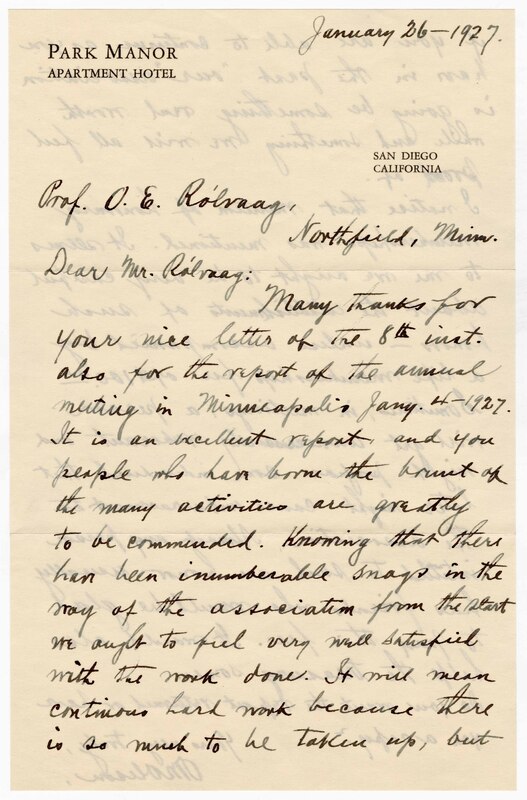 January 26-1927.
PARK MANOR
APARTMENT HOTEL
SAN DIEGO
CALIFORNIA
Prof. O. E. Rölvaag,
Northfield, Minn.
Dear Mr. Rölvaag:
Many thanks for
your nice letter of the 8th inst.
also for the report of the annual
meeting in Minneapolis Jany. 4-1927.
It is an excellent report, and you
people who have borne the brunt of
the many activities are greatly
to be commended. Knowing that there
have been inumberable snags in the
way of the association from the start
we ought to feel very well satisfied
with the work done. It will mean
continous hard work because there
is so much to be taken up, but